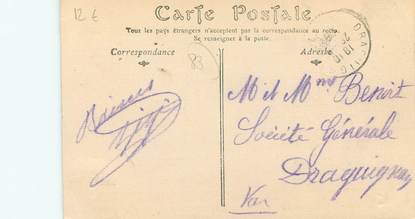 12 €
Carte Postale
Tous les pays étrangers n'acceptent pas la correspondance au recto.
Se renseigner à la poste.
Correspondance
Adresse
83
Baisers
M et Mme Benoit
Société Générale
Draguignan
Var